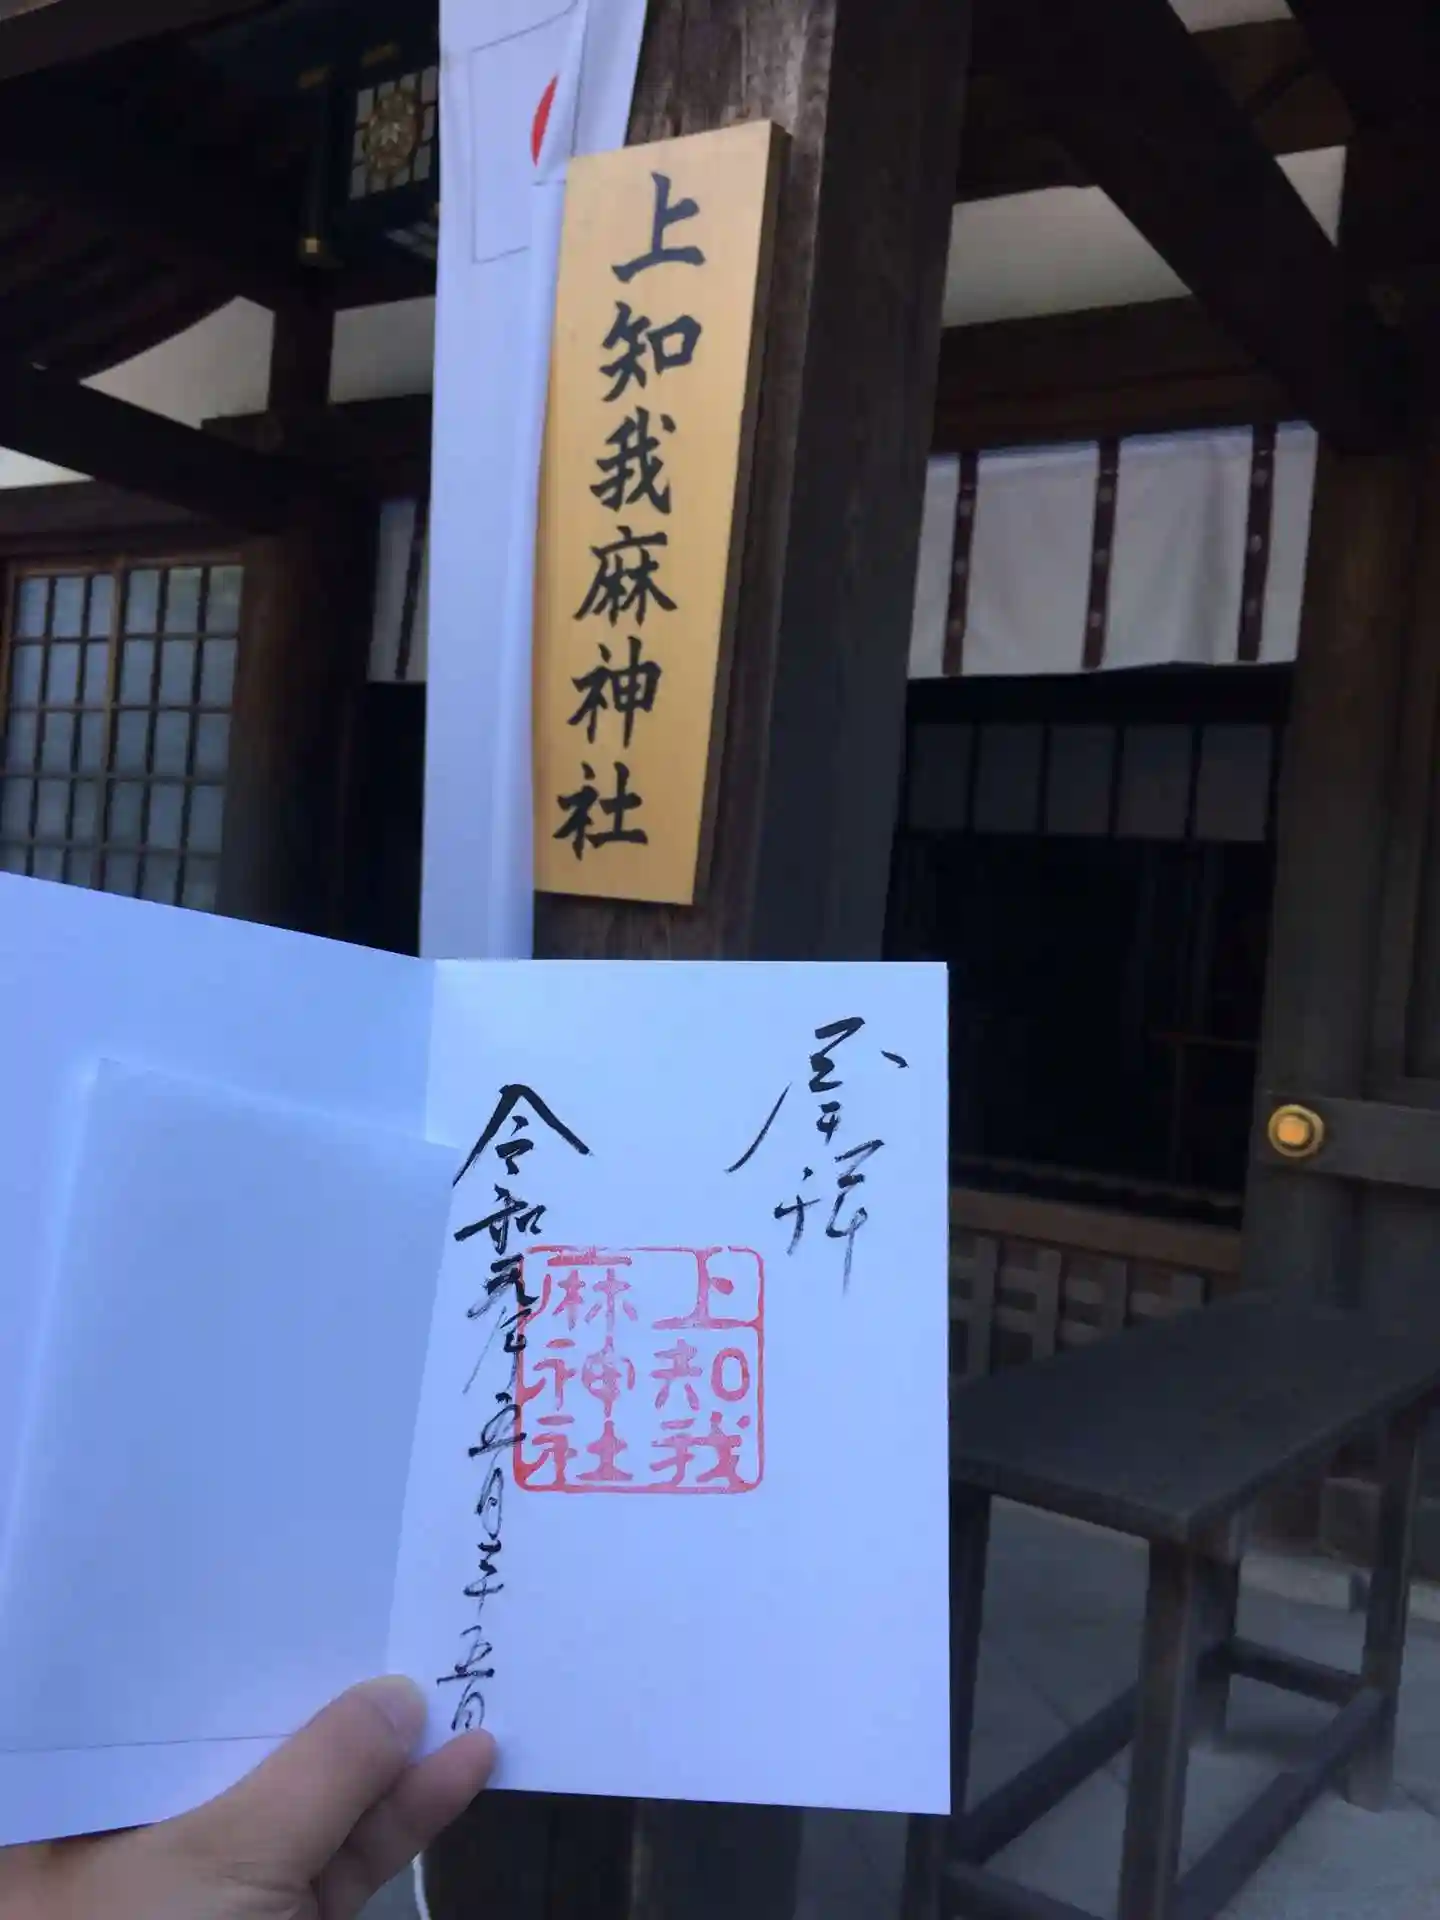 上知我麻神社
奉拝
上知我
麻神社
令和元年五月二十五日